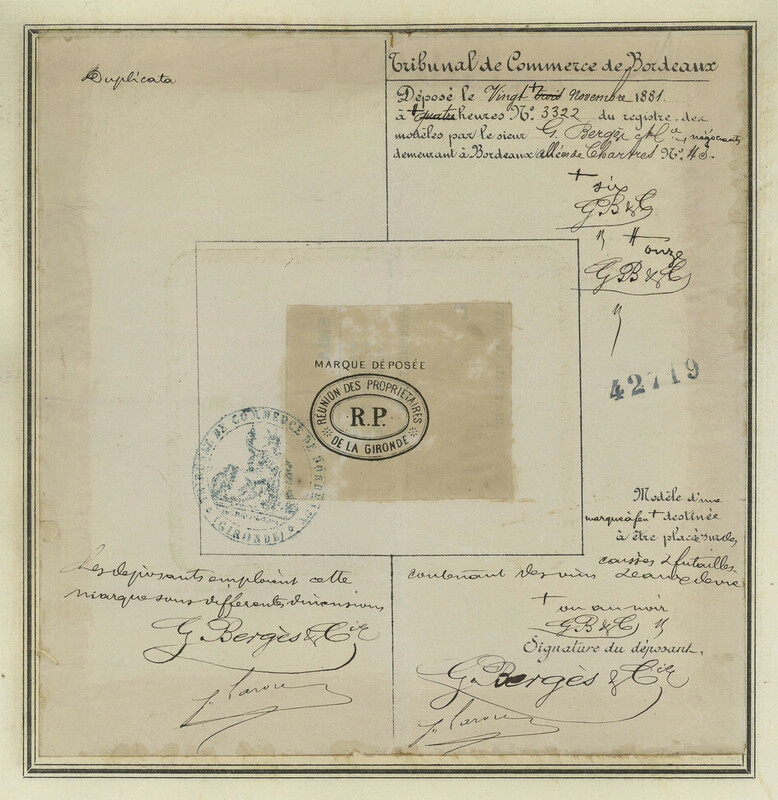 Duplicata
Tribunal de Commerce de Bordeaux
Déposé le Vingt + trois Novembre 1881
à # quatre heures Nº 3322 du registre des
modèles par le sieur G. Bergès & Cie négociants
demeurant à Bordeaux allées de Chartres Nº 43.
+ six
GB & C
# onze
GB & C
42719
MARQUE DÉPOSÉE
RÉUNION DES PROPRIÉTAIRES
R.P.
DE LA GIRONDE
TRIBUNAL DE COMMERCE DE BORDEAUX
(GIRONDE)
Modèle d'une
marque à feu + destinée
à être placé sur des
caisses & futailles
contenant des vins & eaux de vie
+ ou au noir
GB & C
Signature du déposant,
G. Bergès & Cie
Les déposants emploient cette
marque sous différentes dimensions
G Bergès & Cie